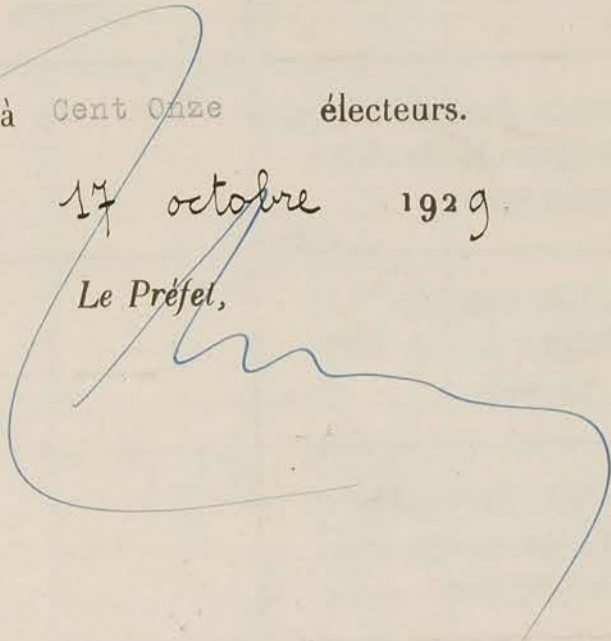 à Cent Onze électeurs.
17 octobre 1929.
Le Préfet,